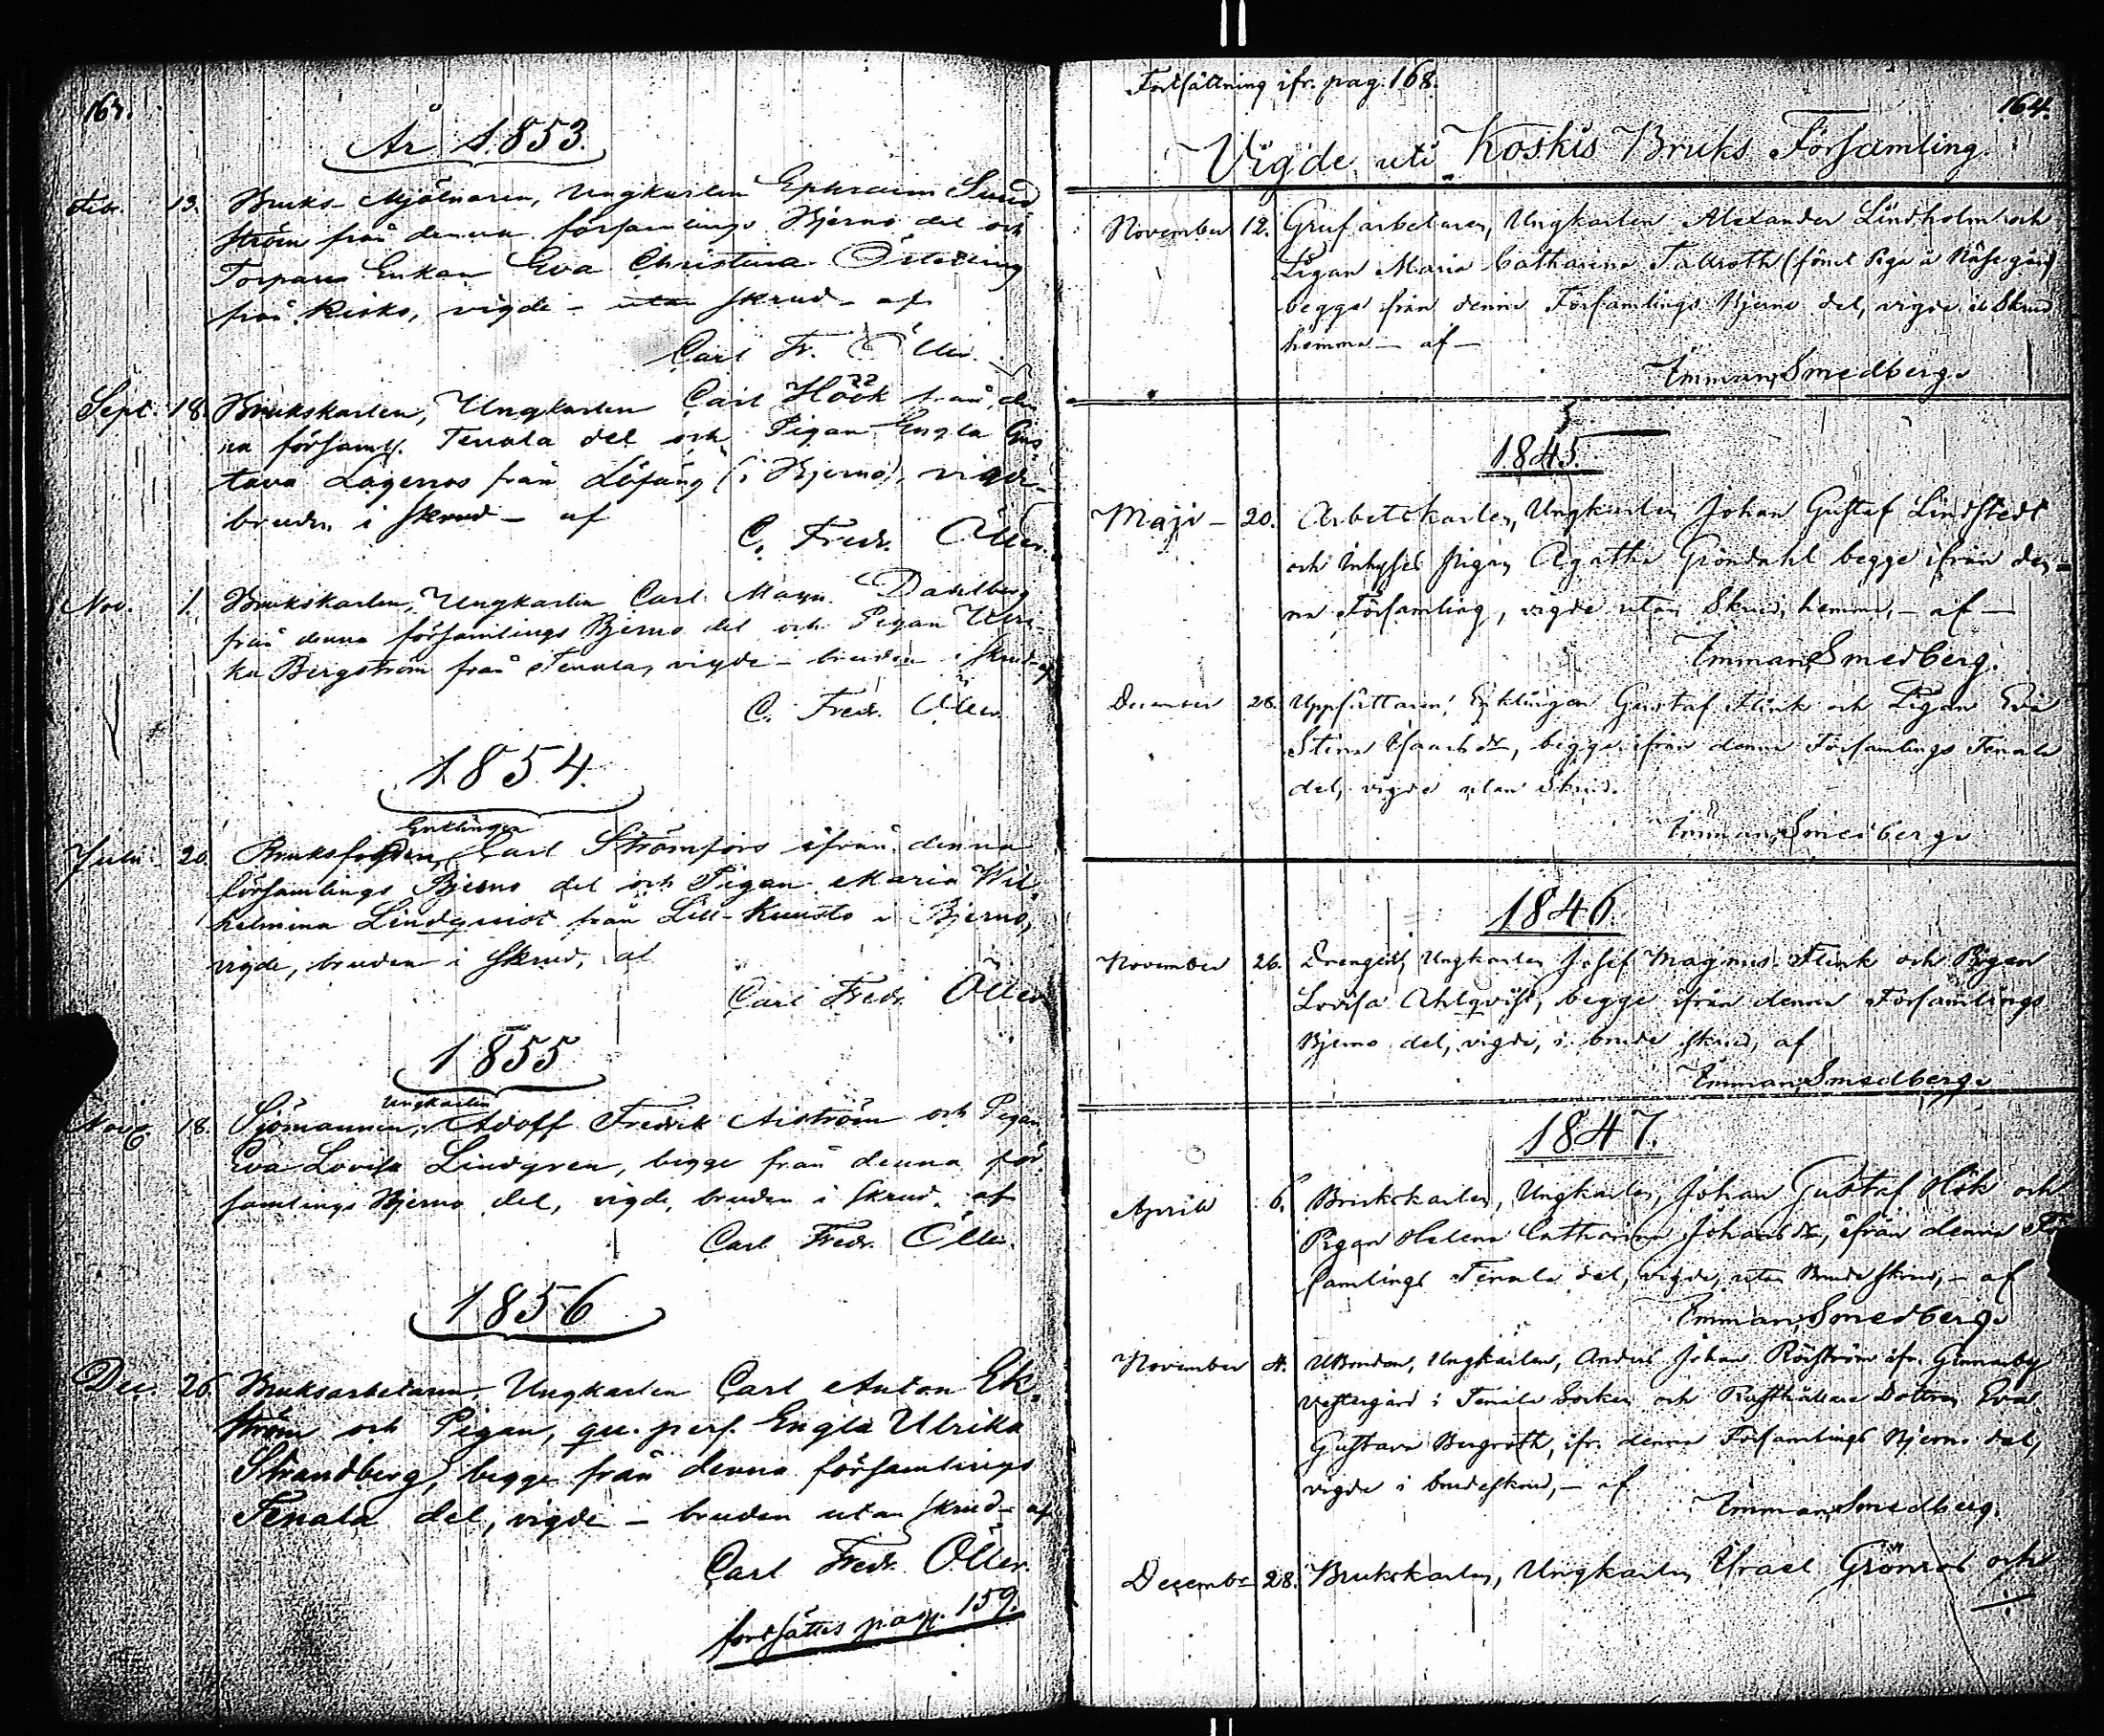 167.
År 1853.
Feb. 13. Bruks-Mjölnaren, Ungkarlen Ephraim Sund
ström från denna församlings Bjerno del och
Torpare Enkan Eva Christina Österling
från Kisko, vigde - utan skrud - af
Carl Fr. Öller.
Sept. 18. Brukskarlen, Ungkarlen Carl Höök från den
na församl. Tenala del och Pigan Engla Gus
tava Lagerros från (i Bjerno), vigde -
bruden i skrud - af
C. Fredr. Öller.
Nov. 1. Brukskarlen, Ungkarlen Carl Magn. Dahlberg
från denna församlings Bjerno del och Pigan Ulri-
ka Bergström från Tenala, vigde - bruden i skrud - af
C. Fredr. Öller.
1854.
Enklingen
20. Bruksfogden, Carl Strömfors ifrån denna
församlings Bjerno del och Pigan Maria Wil
helmina Lindqvist från Lill-Kuusto i Bjerno,
vigde, bruden i skrud, af
Carl Fredr. Öller
1855
Ungkarlen
Nov. 18. Sjömannen, Adolf Fredrik Aiström och Pigan
Eva Lovisa Lindgren, begge från denna för
samlings Bjerno del, vigde, bruden i skrud, af
Carl Fredr. Öller.
1856
Dec. 26. Bruksarbetaren, Ungkarlen Carl Anton Ek-
ström och Pigan, qv. pers. Engla Ulrika
Strandberg, begge från denna församlings
Tenala del, vigde - bruden utan skrud - af
Carl Fredr. Öller.
fortsättes pag. 159.
Fortsättning ifr. pag. 168.
164.
Vigde uti Koskis Bruks Församling.
November 12. Grufarbetaren, Ungkarlen Alexander Lindholm och
Pigan Maria Catharina Tallroth (förut Piga å Näsegård)
begge från denna Församlings Bjerno del, vigde u. Skrud
hemma - af -
Emman. Smedberg.
1845.
Maji - 20. Arbetskarlen, Ungkarlen Johan Gustaf Lindstedt
och Inhyses Pigan Agatha Gröndahl begge ifrån den-
na Församling, vigde utan Skrud, hemma, - af -
Emman. Smedberg.
December 26. Uppsittaren, Enklingen Gustaf Flink och Pigan Eva
Stina Isaacs dr, begge ifrån denna Församlings Tenala
del, vigde utan Skrud.
Emman. Smedberg.
1846.
November 26. Drengen, Ungkarlen Josef Magnus Flink och Pigan
Lovisa Ahlqvist, begge ifrån denna Församlings
Bjerno del, vigde, i brudeskrud, af
Emman. Smedberg.
1847.
Aprill 6. Brukskarlen, Ungkarlen, Johan Gustaf Hök och
Pigan Helena Catharina Johans dr, ifrån denna För
samlings Tenala del, vigde, utan Brudeskrud, - af
Emman. Smedberg.
November 4. Ungkarlen, Anders Johan Röström ifr. Gennarby
Vestergård i Tenala Socken och Rusthållare Dottren Eva
Gustava Bergroth, ifr. denna Församlings Bjerno del,
vigde i brudeskrud, - af
Emman. Smedberg.
Decembr 28. Brukskarlen, Ungkarlen Israel Grönros och